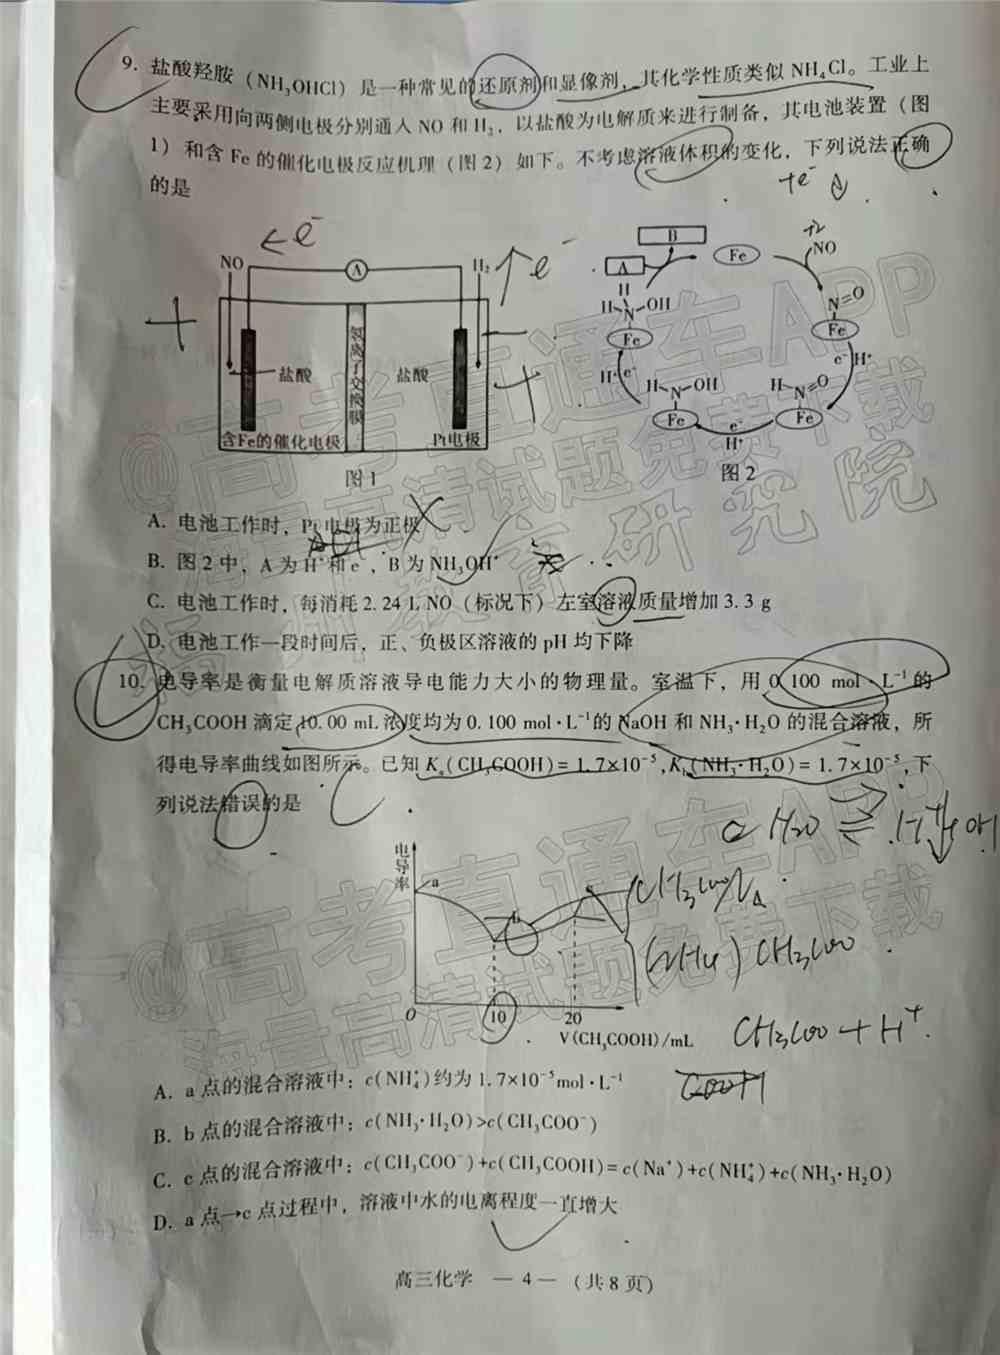 9. 盐酸羟胺（NH₃OHCl）是一种常见的还原剂和显像剂，其化学性质类似NH₄Cl。工业上
主要采用向两侧电极分别通入NO和H₂，以盐酸为电解质来进行制备，其电池装置（图
1）和含Fe的催化电极反应机理（图2）如下。不考虑溶液体积的变化，下列说法正确
的是
+e⁻
←e⁻
e⁻
NO
A
H₂
盐酸
氢离子交换膜
盐酸
含Fe的催化电极
Pt电极
图1
B
A
Fe
NO
N=O
Fe
e⁻ H⁺
H N=O
Fe
e⁻
H⁺
H N-OH
Fe
H⁺ e⁻
H
H-N-OH
Fe
图2
A. 电池工作时，Pt电极为正极
B. 图2中，A为H⁺和e⁻，B为NH₃OH⁺
C. 电池工作时，每消耗2.24 L NO（标况下）左室溶液质量增加3.3 g
D. 电池工作一段时间后，正、负极区溶液的pH均下降
10. 电导率是衡量电解质溶液导电能力大小的物理量。室温下，用0.100 mol·L⁻¹的
CH₃COOH滴定10.00 mL浓度均为0.100 mol·L⁻¹的NaOH和NH₃·H₂O的混合溶液，所
得电导率曲线如图所示。已知Kₐ(CH₃COOH)=1.7×10⁻⁵,K_b(NH₃·H₂O)=1.7×10⁻⁵,下
列说法错误的是
H₂O ⇌ H⁺+OH
电导率
a
b
O
10
20
V(CH₃COOH)/mL
CH₃COONa
CH₃COO
CH₃COO + H⁺
A. a点的混合溶液中：c(NH₄⁺)约为1.7×10⁻⁵mol·L⁻¹
B. b点的混合溶液中：c(NH₃·H₂O)>c(CH₃COO⁻)
C. c点的混合溶液中：c(CH₃COO⁻)+c(CH₃COOH)=c(Na⁺)+c(NH₄⁺)+c(NH₃·H₂O)
D. a点→c点过程中，溶液中水的电离程度一直增大
高三化学 — 4 — （共8页）
@高考直通车APP
海量高清试题免费下载
@高考直通车APP
海量高清试题免费下载